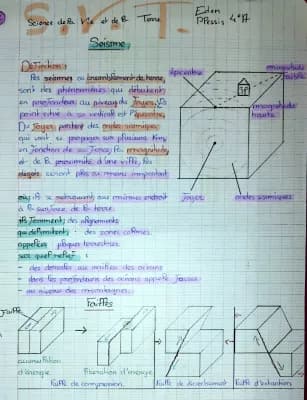 S.V.T.
Science de la Vie et de la Terre
Eden
Plessis 4°A
Séisme
Définition :
Les séismes ou tremblement de terre,
sont des phénomènes qui débutent
en profondeur au niveau du foyer. Le
point situé à sa verticale est l'épicentre.
Du foyer partent des ondes sismiques,
qui vont se propager sur plusieurs km,
en fonction de sa force, la magnitude
et de la proximité d'une ville, les
dégâts seront plus ou moins important
épicentre
magnitude
faible
magnitude
haute
foyer
ondes sismiques
à la surface de la terre.
Ils forment des alignements
qui délimitent des zones calmes
appelées plaques terrestres
- des dorsales au milieu des océans
- dans les profondeurs des océans appelé fosses
- au niveau des montagnes.
Failles
Faille
accumulation
d'énergie
libération d'énergie
Faille de compression
Faille de décrochement
Faille d'extension